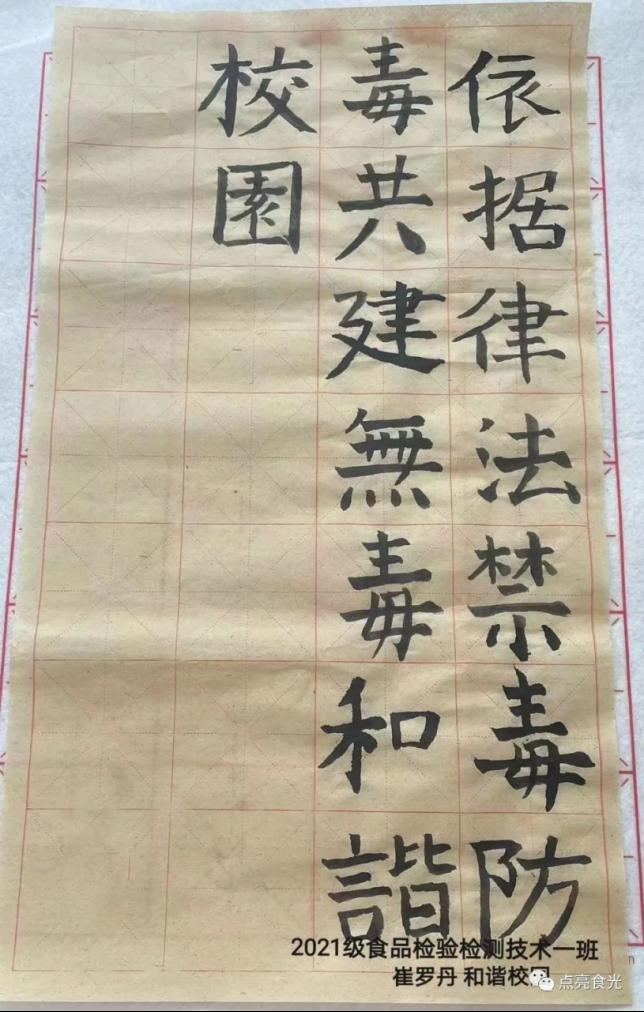 依据律法禁毒防
毒共建無毒和
諧
校园
2021级食品检验检测技术一班
崔罗丹 和谐校园
点亮食光